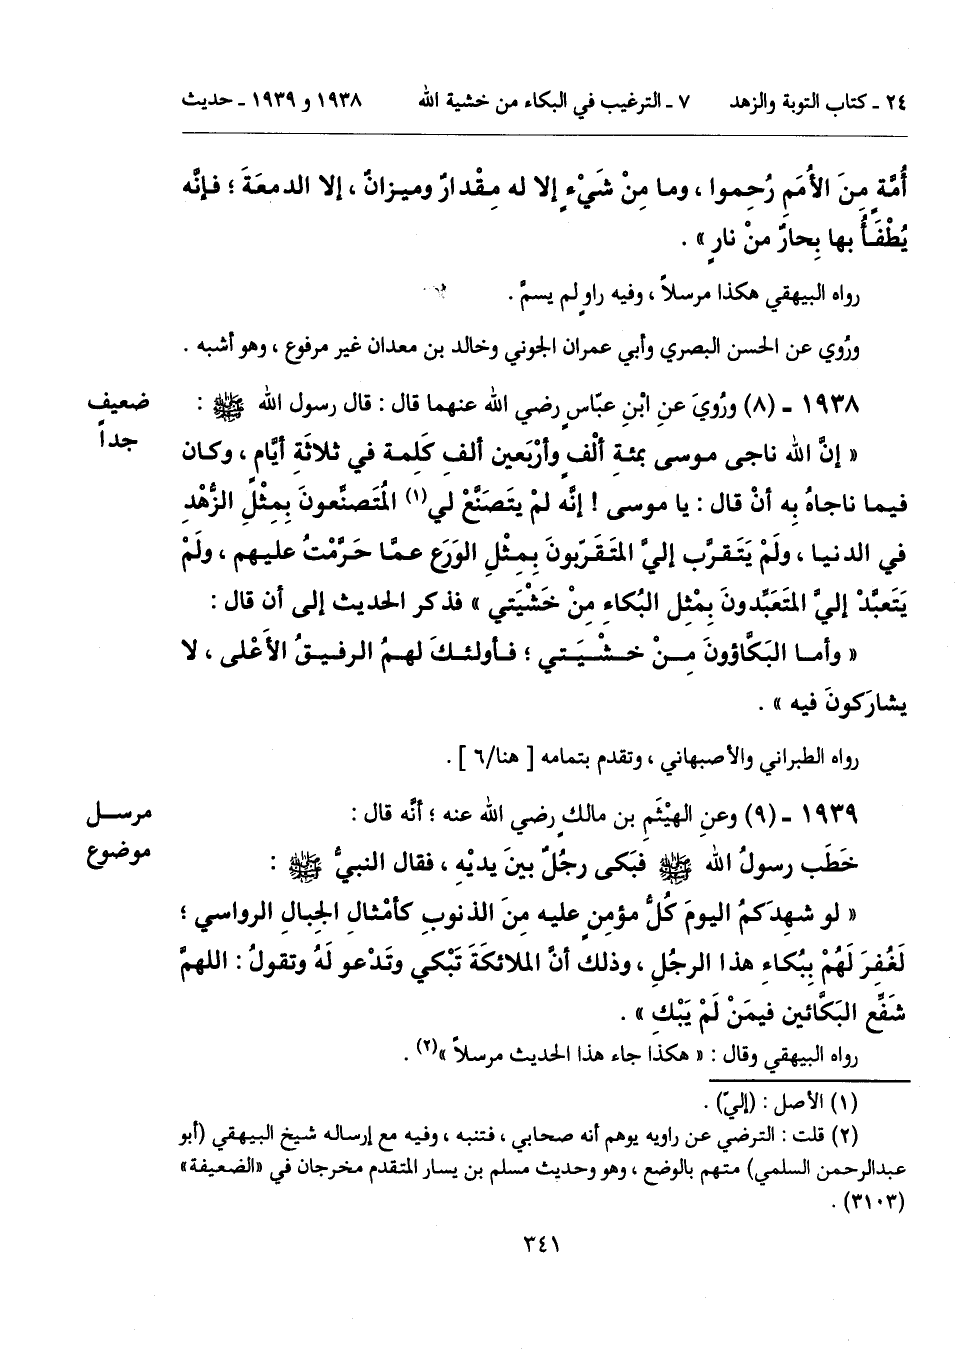 ٢٤ ـ كتاب التوبة والزهد ٧ ـ الترغيب في البكاء من خشية الله ١٩٣٨ و ١٩٣٩ ـ حديث
أُمَّةٍ مِنَ الأُمَمِ رُحِموا ، وما مِنْ شَيْءٍ إلا له مِقْدارٌ وميزانٌ ، إلا الدمعَةَ ؛ فإنَّه
يُطْفَأُ بها بِحارٌ منْ نارٍ » .
رواه البيهقي هكذا مرسلاً ، وفيه راوٍ لم يسمَّ .
ورُوي عن الحسن البصري وأبي عمران الجوني وخالد بن معدان غير مرفوع ، وهو أشبه .
ضعيف جداً
١٩٣٨ ـ (٨) ورُويَ عنِ ابْنِ عبَّاسٍ رضي الله عنهما قال : قال رسول الله ﷺ :
« إنَّ الله ناجى موسى بمئةِ ألْفٍ وأرْبَعين ألفِ كَلِمة في ثلاثَةِ أيَّامٍ ، وكان
فيما ناجاهُ بِه أنْ قال : يا موسى ! إنَّه لمْ يتَصَنَّعْ لي(١) المُتَصنَّعونَ بِمِثْلِ الزُّهْدِ
في الدنيا ، ولَمْ يَتَقرَّب إليَّ المتَقَرّبونَ بِمثْلِ الوَرَعِ عمَّا حَرَّمْتُ عليهم ، ولَمْ
يَتَعبَّدْ إليَّ المتَعَبِّدونَ بِمْثلِ البُكاءِ مِنْ خَشْيَتي » فذكر الحديث إلى أن قال :
« وأما البَكَّاؤونَ مِنْ خشْيَتي ؛ فأولئكَ لهمُ الرفيقُ الأَعْلى ، لا
يشارَكونَ فيه » .
رواه الطبراني والأصبهاني ، وتقدم بتمامه [ هنا/٦ ] .
مرسل موضوع
١٩٣٩ ـ (٩) وعنِ الهيْثَمِ بن مالكٍ رضي الله عنه ؛ أنَّه قال :
خَطَب رسولُ الله ﷺ فبَكى رجُلٌ بينَ يديْهِ ، فقال النبيُّ ﷺ :
« لو شهِدَكمُ اليومَ كُلُّ مؤمنٍ عليه مِنَ الذنوبِ كأمْثالِ الجِبالِ الرواسي ؛
لَغُفِرَ لَهُمْ بِبُكاءِ هذا الرجُلِ ، وذلك أنَّ الملائكَةَ تَبْكي وتَدْعو لَهُ وتقولُ : اللهمَّ
شَفِّعِ البَكَّائين فيمَنْ لَمْ يَبْكِ » .
رواه البيهقي وقال : « هكذا جاء هذا الحديث مرسلاً »(٢) .
(١) الأصل : (إليّ) .
(٢) قلت : الترضي عن راويه يوهم أنه صحابي ، فتنبه ، وفيه مع إرساله شيخ البيهقي (أبو
عبدالرحمن السلمي) متهم بالوضع ، وهو وحديث مسلم بن يسار المتقدم مخرجان في «الضعيفة»
(٣١٠٣) .
٣٤١